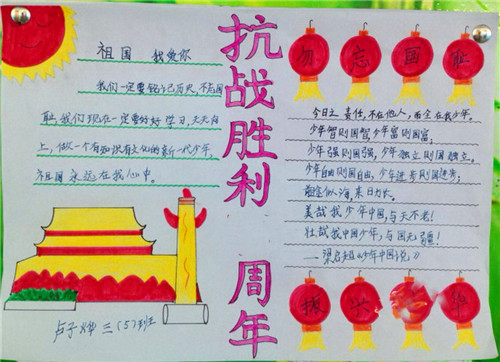 抗战胜利 周年
祖国 我爱你
我们一定要铭记历史,不忘国
耻,我们现在一定要好好学习,天天向
上,做一个有知识有文化的新一代少年,
祖国永远在我心中。
卢子烨 三(5)班
勿忘国耻
今日之责任,不在他人,而全在我少年,
少年智则国智,少年富则国富,
少年强则国强,少年独立则国独立,
少年自由则国自由,少年进步则国进步,
前途似海,来日方长。
美哉我少年中国,与天不老!
壮哉我中国少年,与国无疆!
——梁启超《少年中国说》
振兴 华